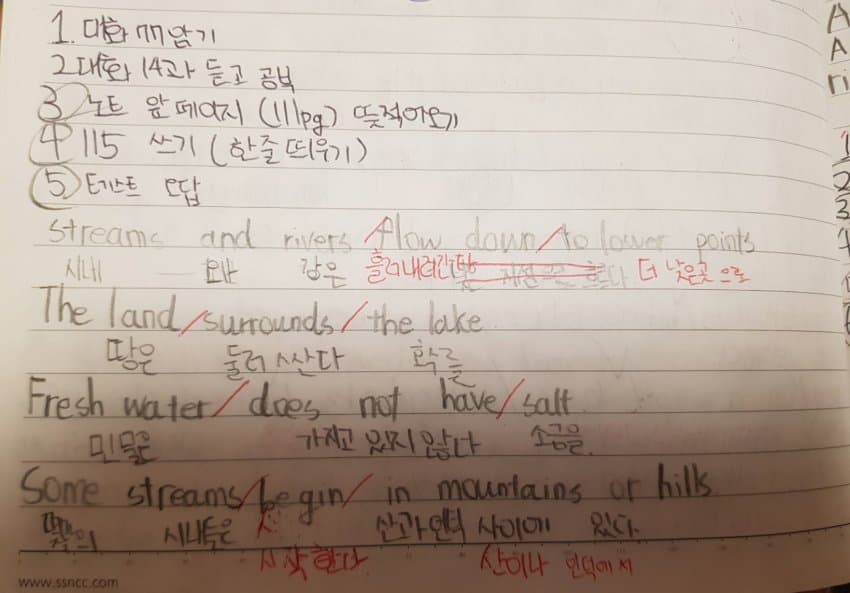 1. 대화 77 암기
2 대화 14과 듣고 공부
3 노트 앞페이지 (111pg) 뜻적어오기
4 115 쓰기 (한줄 띄우기)
5 테스트 오답
streams and rivers / flow down / to lower points
시내 와 강은 흘러내려간다 더 낮은곳 으로
The land / surrounds / the lake
땅은 둘러 싼다
Fresh water / does not have / salt
민물은 가지고 있지 않다 소금을.
Some streams / begin / in mountains or hills
시내들은 산과 언덕 사이에 있다.
시작 한다 산이나 언덕에서
www.ssncc.com
A
A
ri
1
2
3